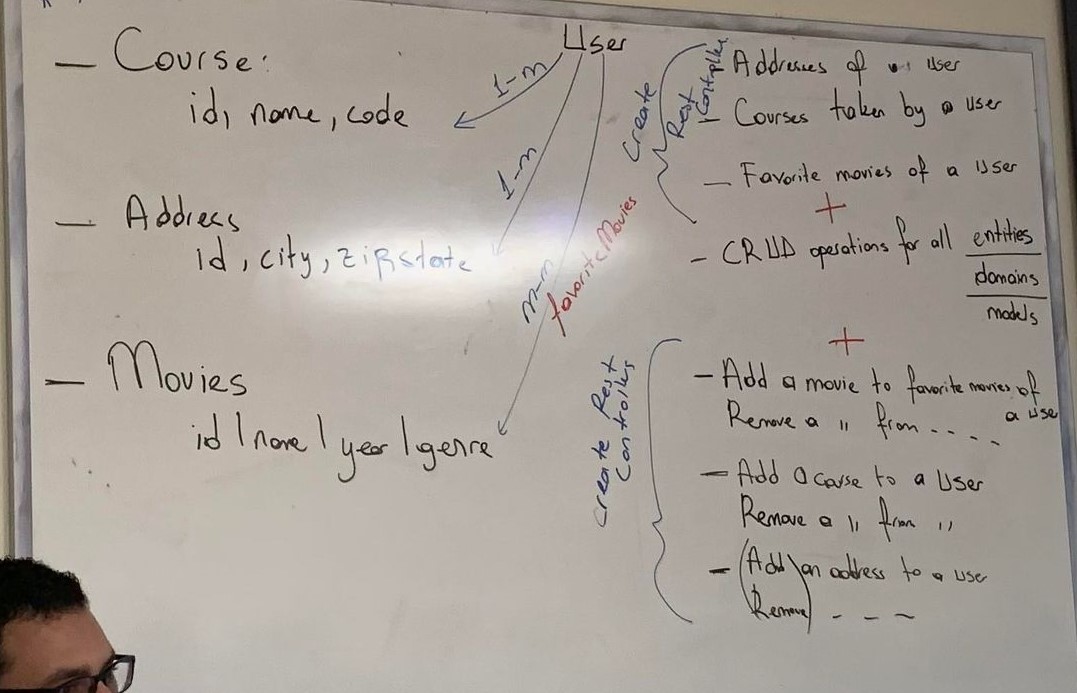 — Course:
id, name, code
— Address
id, city, zip, state
— Movies
id | name | year | genre
User
1-m
1-m
m-m
favorite Movies
Create Rest Controller
Addresses of User
— Courses taken by a user
— Favorite movies of a User
+
— CRUD operations for all entities
domains
models
+
Create Rest Controller
— Add a movie to favorite movies of a User
Remove a " from - - - -
— Add a course to a User
Remove a " from "
— (Add) an address to a user
(Remove) - - -